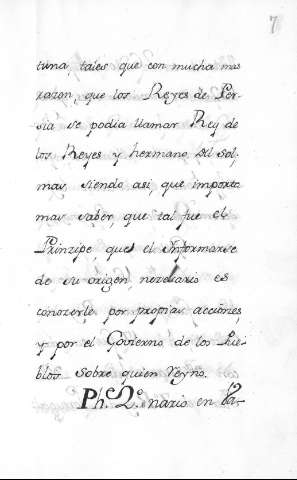 7
tuna, tales que con mucha mas
razon, que los Reyes de Per-
sia se podia llamar Rey de
los Reyes y hermano del sol.
mas, siendo asi, que importa
mas saber, que tal fue el
Prinzipe, que el Informarse
de su origen nezesario es
conozerle por propias acciones,
y por el Govierno de los Pue-
blos sobre quien reyno.
nario en